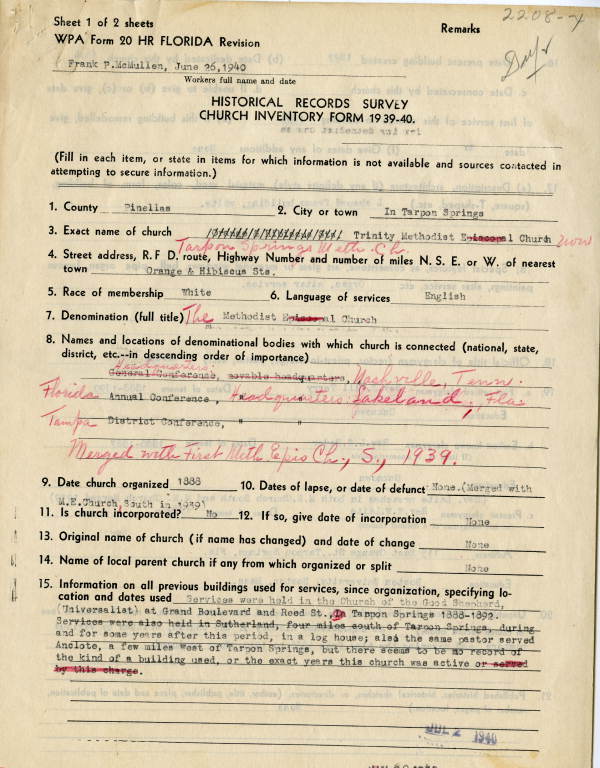 Sheet 1 of 2 sheets
Remarks
2208-4
WPA Form 20 HR FLORIDA Revision
Frank P.McMullen, June 26,1940
Workers full name and date
HISTORICAL RECORDS SURVEY
CHURCH INVENTORY FORM 1939-40.
(Fill in each item, or state in items for which information is not available and sources contacted in
attempting to secure information.)
1. County Pinellas 2. City or town In Tarpon Springs
3. Exact name of church Trinity Methodist Episcopal Church
Tarpon Springs Meth. Ch.
4. Street address, R.F D. route, Highway Number and number of miles N. S. E. or W. of nearest
town Orange & Hibiscus Sts.
5. Race of membership White 6. Language of services English
7. Denomination (full title) The Methodist Episcopal Church
8. Names and locations of denominational bodies with which church is connected (national, state,
district, etc.--in descending order of importance)
Headquarters:
General Conference, movable headquarters, Nashville, Tenn.
Florida Annual Conference, Headquarters Lakeland, Fla.
Tampa District Conference, " "
Merged with First Meth Epis Ch., S., 1939.
9. Date church organized 1888 10. Dates of lapse, or date of defunct None.(Merged with
M.E.Church South in 1939)
11. Is church incorporated? No 12. If so, give date of incorporation None
13. Original name of church (if name has changed) and date of change None
14. Name of local parent church if any from which organized or split None
15. Information on all previous buildings used for services, since organization, specifying lo-
cation and dates used Services were held in the Church of the Good Shepherd,
(Universalist) at Grand Boulevard and Reed St., In Tarpon Springs 1888-1892.
Services were also held in Sutherland, four miles south of Tarpon Springs, during
and for some years after this period, in a log house; also the same pastor served
Anclote, a few miles West of Tarpon Springs, but there seems to be no record of
the kind of a building used, or the exact years this church was active or served
by this charge.
JUL 2 1940